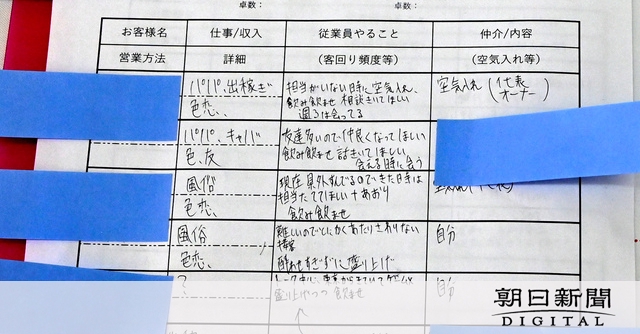 卓数： 卓数：
お客様名 仕事/収入 従業員やること 仲介/内容
営業方法 詳細 (客回り頻度等) (空気入れ等)
パパ、出稼ぎ 担当がいない時に空気入れ、 空気入れ (代表
飲み飲ませ 相談きいてほしい オーナー)
色恋、 週3は会ってる
パパ、キャバ 友達多いので仲良くなってほしい
色、友 飲み飲ませ 話きいてほしい
会える時に会う
風俗 現在 県外すんでるのできた日は
担当たててほしい + あおり
色恋、 飲み飲ませ
風俗 難しいのでとにかくあたりさわりない 自分
接客
色恋、 酔わせすぎずに盛り上げ
自分
盛り上げつつ 飲ませ
朝日新聞
DIGITAL